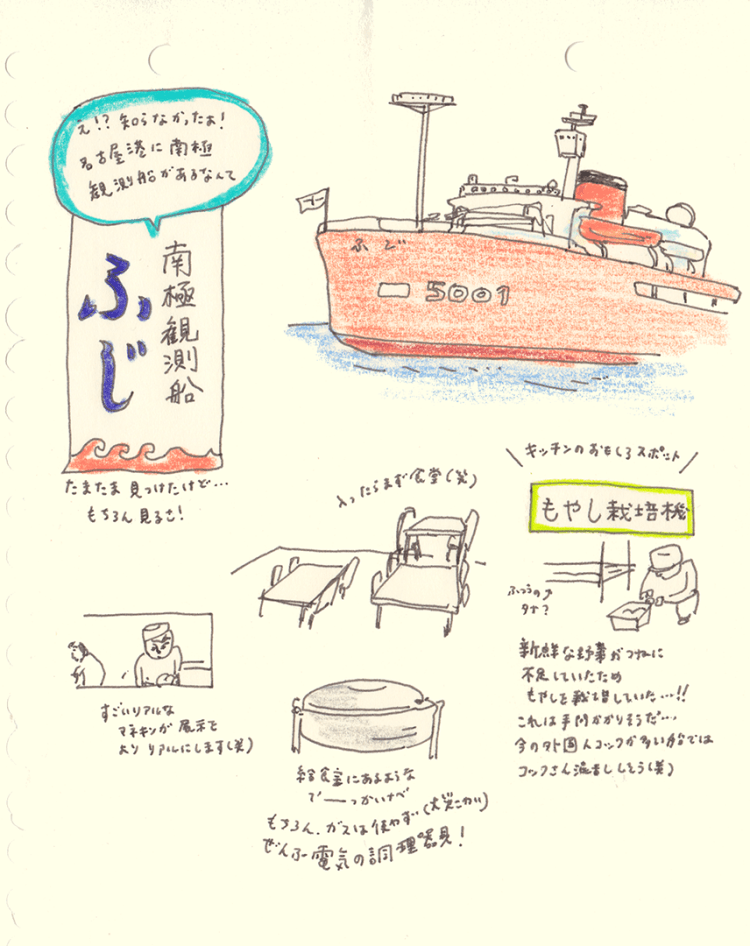 え!?知らなかったぁ!
名古屋港に南極
観測船があるなんて
南極観測船
ふじ
たまたま見つけたけど…
もちろん見るさ!
ふじ
5001
入ったらまず食堂(笑)
キッチンのおもしろスポット
もやし栽培機
ふつうの
新鮮な野菜がつねに
不足していたため
もやしを栽培していた…!!
これは手間かかりそうだ…
今の外国人コックが多い船では
コックさん混乱しそう(笑)
すごいリアルな
マネキンが展示を
よりリアルにします(笑)
給食室にあるような
でーーっかいなべ
もちろん、ガスは使わず(火災こわい)
ぜんぶ電気の調理器具!